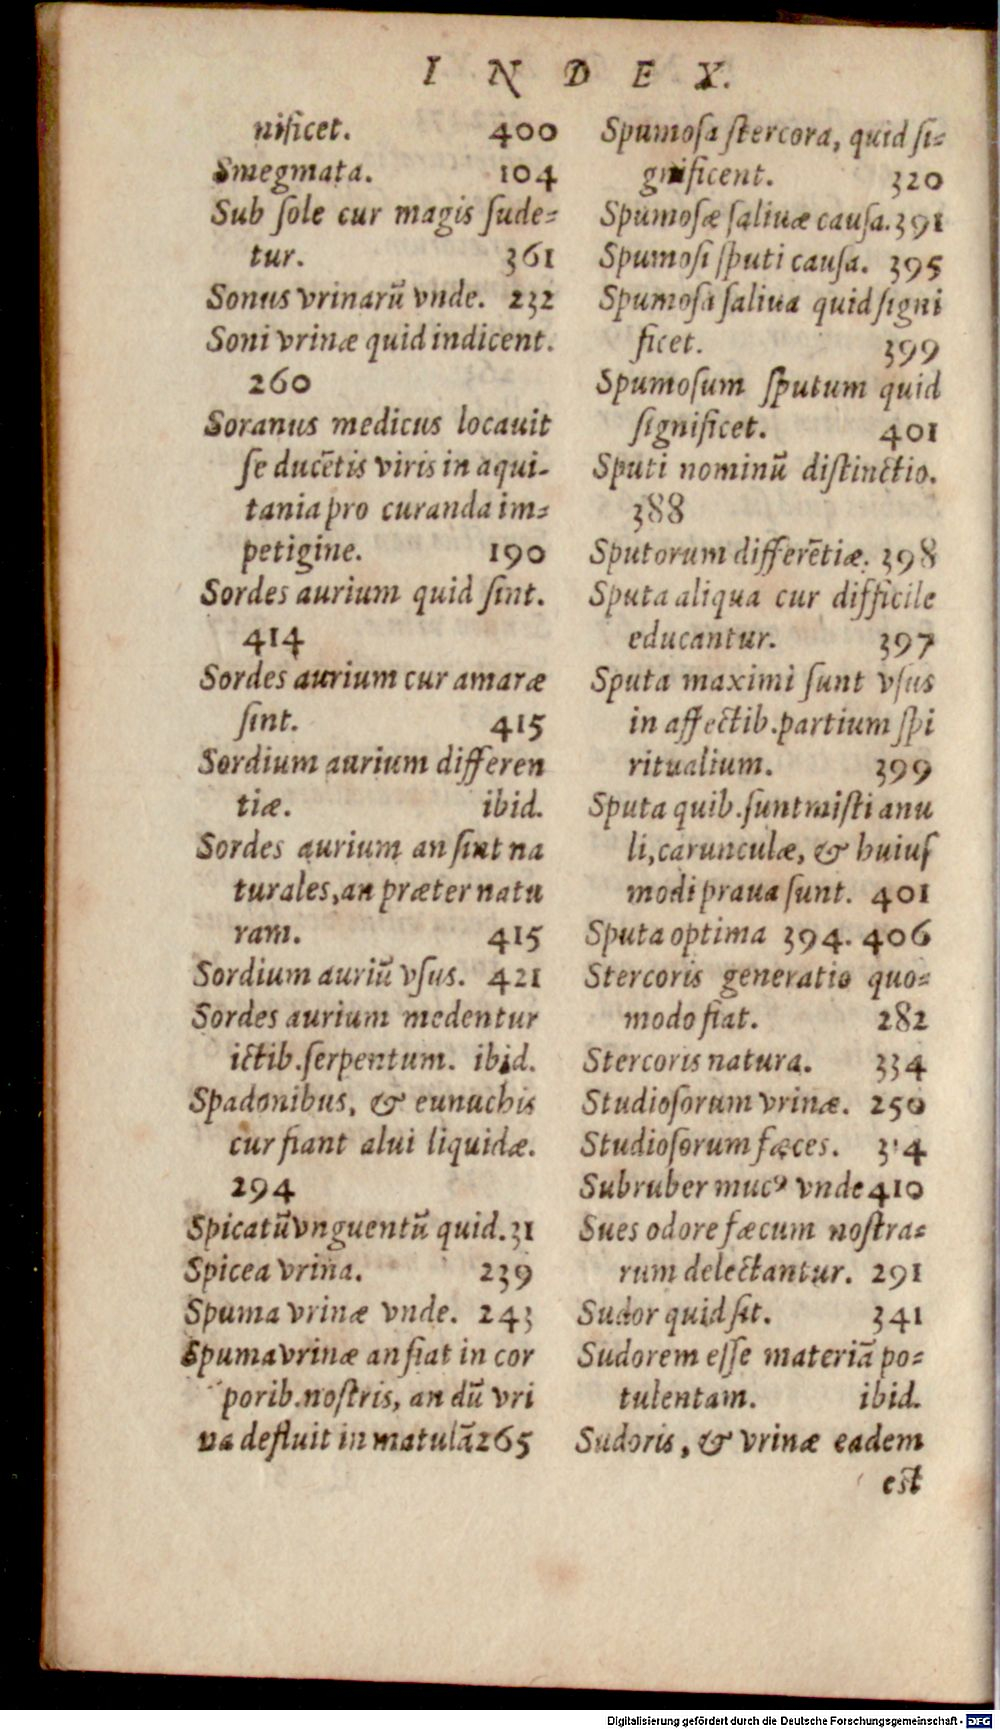 INDEX.
nificet. 400
Smegmata. 104
Sub ſole cur magis ſude=
tur. 361
Sonus vrinarũ vnde. 232
Soni vrinæ quid indicent.
260
Soranus medicus locauit
ſe ducẽtis viris in aqui-
tania pro curanda im=
petigine. 190
Sordes aurium quid ſint.
414
Sordes aurium cur amaræ
ſint. 415
Sordium aurium differen
tiæ. ibid.
Sordes aurium an ſint na
turales, an præter natu
ram. 415
Sordium auriũ vſus. 421
Sordes aurium medentur
ictib. ſerpentum. ibid.
Spadonibus, & eunuchis
cur fiant alui liquidæ.
294
Spicatũ vnguentũ quid. 31
Spicea vrina. 239
Spuma vrinæ vnde. 243
Spuma vrinæ an fiat in cor
porib. noſtris, an dũ vri
na defluit in matulã 265
Spumoſa ſtercora, quid ſi=
gnificent. 320
Spumoſæ ſaliuæ cauſa. 391
Spumoſi ſputi cauſa. 395
Spumoſa ſaliua quid ſigni
ficet. 399
Spumoſum ſputum quid
ſignificet. 401
Sputi nominũ diſtinctio.
388
Sputorum differẽtiæ. 398
Sputa aliqua cur difficile
educantur. 397
Sputa maximi ſunt vſus
in affectib. partium ſpi
ritualium. 399
Sputa quib. ſunt miſti anu
li, carunculæ, & huiuſ
modi praua ſunt. 401
Sputa optima 394. 406
Stercoris generatio quo=
modo fiat. 282
Stercoris natura. 334
Studioſorum vrinæ. 250
Studioſorum fæces.
Subruber mucꝰ vnde 410
Sues odore fæcum noſtra=
rum delectantur. 291
Sudor quid ſit. 341
Sudorem eſſe materiã po=
tulentam. ibid.
Sudoris, & vrinæ eadem
eſt
Digitalisierung gefördert durch die Deutsche Forschungsgemeinschaft - DFG